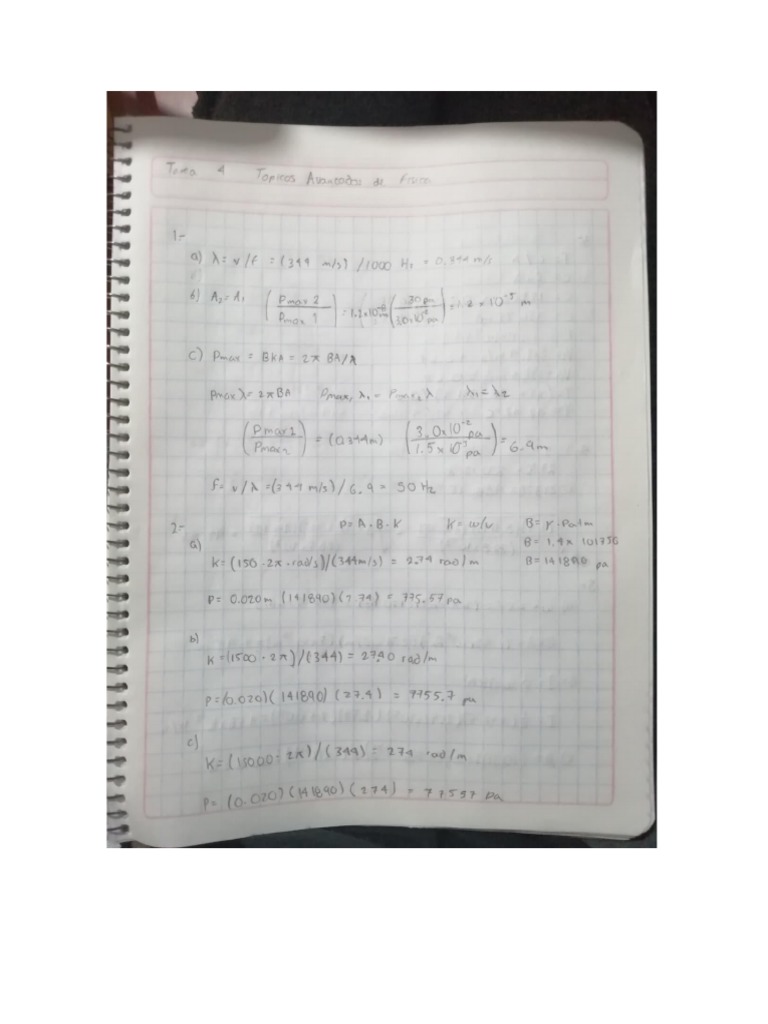 Tema 4 Topicos Avanzados de Fisica
1.-
a) λ = v/f = (344 m/s) / 1000 Hz = 0.344 m/s
b) A₂ = A₁ (Pmax 2 / Pmax 1) = 1.2x10⁻⁸ (30 pa / 3.0x10⁻² pa) = 1.2 x 10⁻⁵ m
c) Pmax = BKA = 2π BA/λ
Pmax λ = 2π BA Pmax₁ λ₁ = Pmax₂ λ λ₁ = λ₂
(Pmax 1 / Pmax 2) = (0.344m) (3.0x10⁻² pa / 1.5x10⁻³ pa) = 6.9 m
f = v/λ = (344 m/s) / 6.9 = 50 Hz
2.- P = A · B · K K = w/v B = γ · Patm
a) B = 1.4 x 101350
K = (150 · 2π · rad/s)/(344m/s) = 2.74 rad/m B = 141890 pa
P = 0.020m (141890)(2.74) = 775.57 pa
b)
K = (1500 · 2π)/(344) = 27.40 rad/m
P = (0.020)(141890)(27.4) = 7755.7 pa
c)
K = (15000 · 2π)/(344) = 274 rad/m
P = (0.020)(141890)(274) = 77557 pa